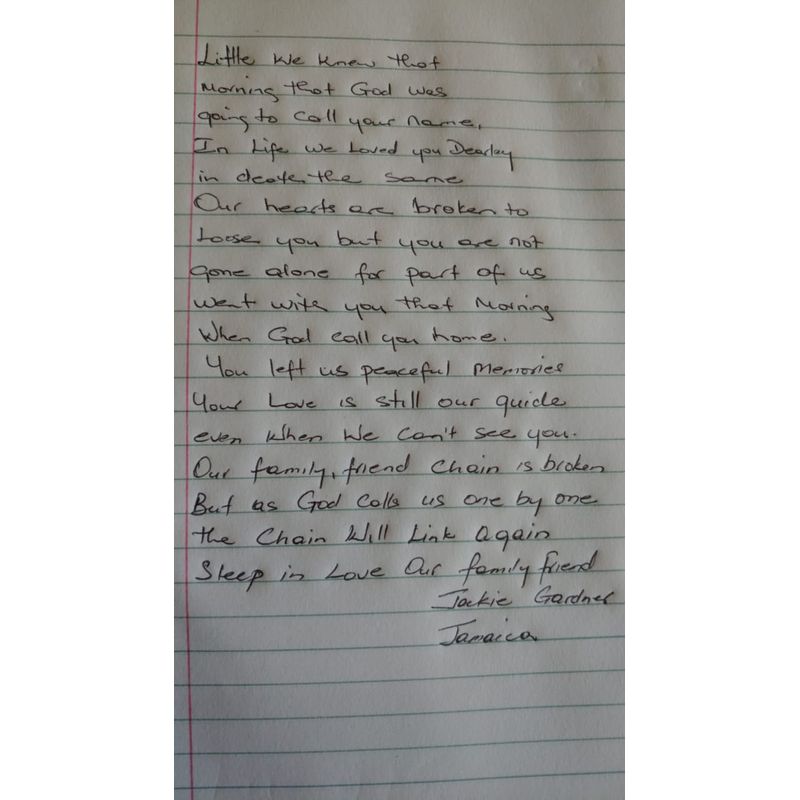 Little we knew that
Morning that God was
going to call your name,
In Life we Loved you Dearley
in death the same
Our hearts are broken to
Loose you but you are not
gone alone for part of us
went with you that Morning
When God call you home.
You left us peaceful Memories
Your Love is still our guide
even when we can't see you.
Our family, friend Chain is broken
But as God Calls us one by one
the Chain Will Link Again
Sleep in Love Our family friend
Jackie Gardner
Jamaica